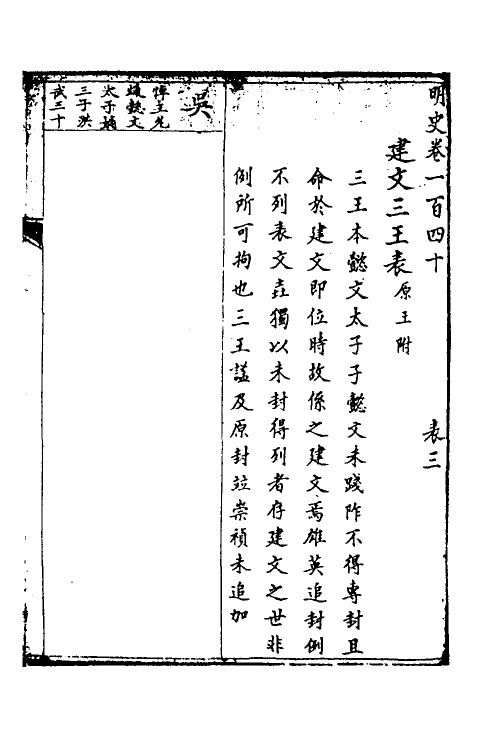 明史卷一百四十 表三
建文三王表 原王附
三王本懿文太子子懿文未踐阼不得專封且
命於建文即位時故係之建文焉雄英追封例
不列表文垚獨以未封得列者存建文之世非
例所可拘也三王諡及原封竝崇禎未追加
吳
悼王允
熥懿文
太子嫡
三子洪
武三十